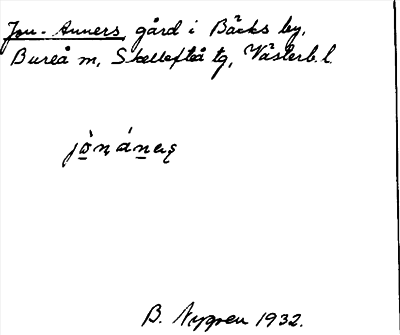 Jon-Anners gård i Bäcks by,
Bureå sn, Skellefteå tg, Västerb. l.
jònáneş
B. Nygren 1932.